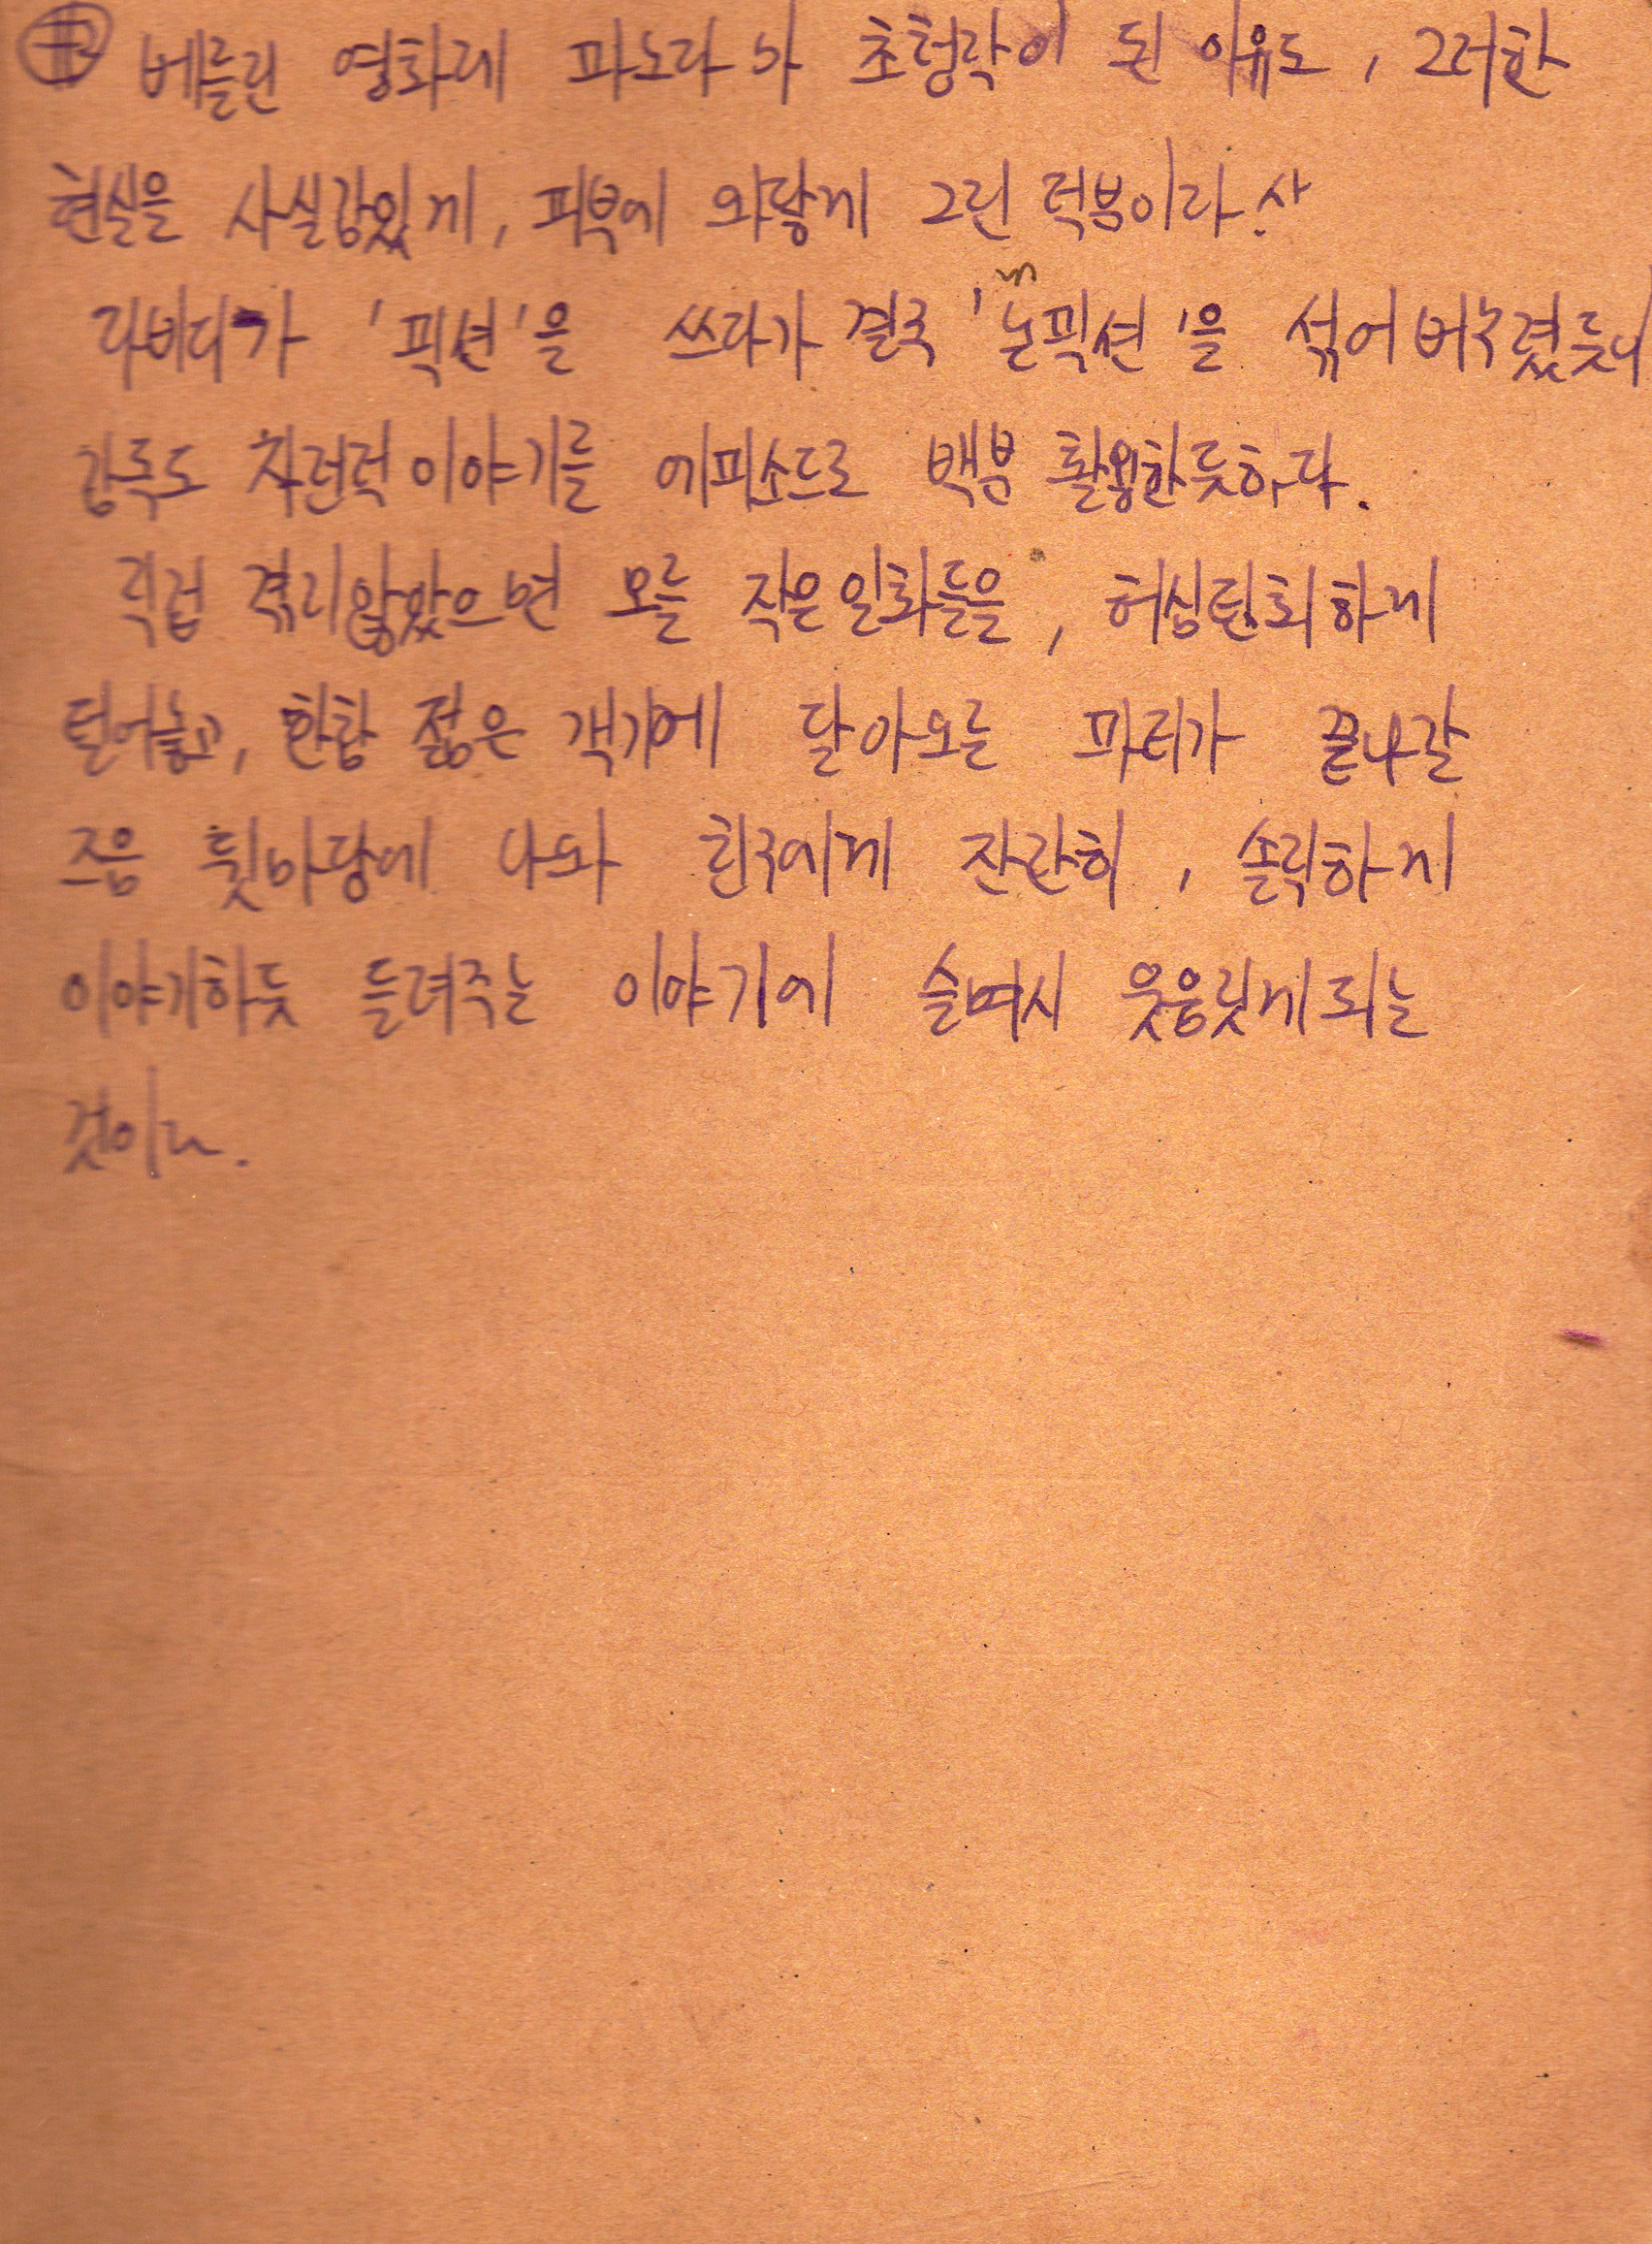 베를린 영화제 파노라마 초청작이 된 이유도, 그러한
현실을 사실감있게, 피부에 와닿게 그린 덕분이리라.
라비디가 '픽션'을 쓰다가 결국 '논픽션'을 섞어 버렸듯이
감독도 자전적 이야기를 에피소드로 백분 활용한듯하다.
직접 겪지않았으면 모를 작은일화들을, 허심탄회하게
털어놓고, 한창 젊은 객기에 달아오른 파티가 끝나갈
즈음 뒷마당에 나와 친구에게 잔잔히, 솔직하게
이야기하듯 들려주는 이야기에 슬며시 웃음짓게되는
것이다.